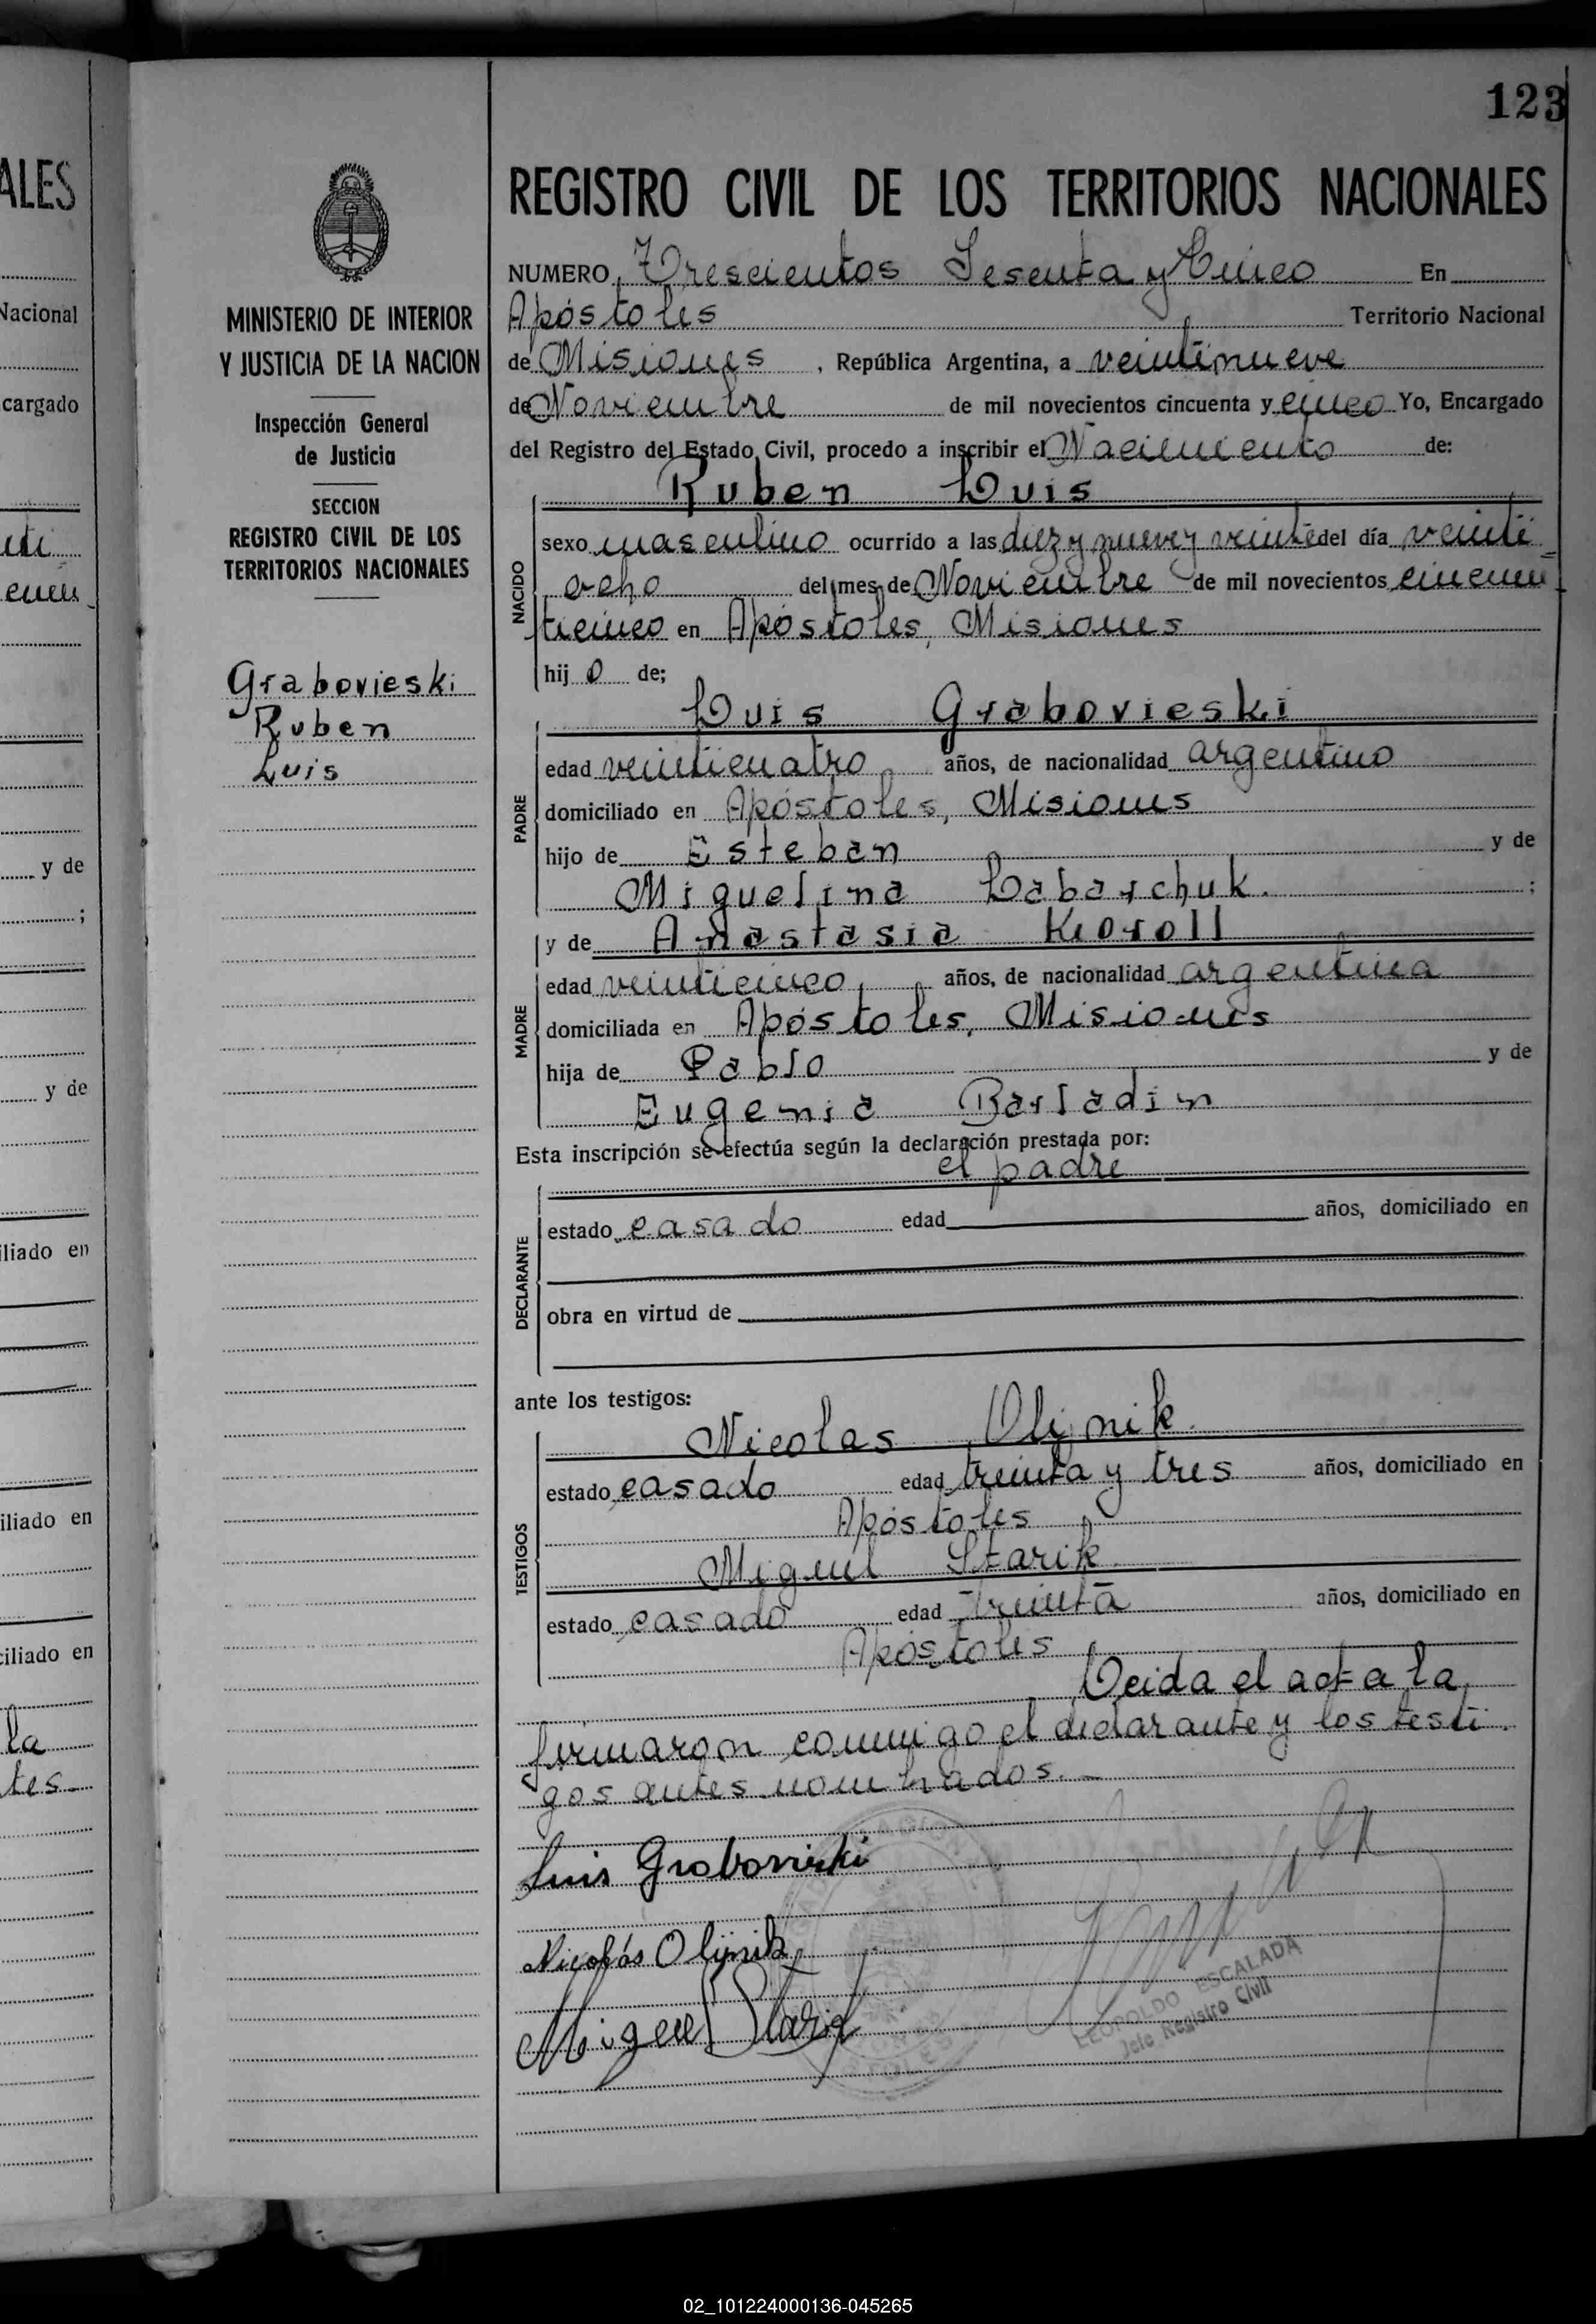 ALES
Nacional
cargado
y de
;
y de
iliado en
iliado en
ciliado en
la
tes
MINISTERIO DE INTERIOR
Y JUSTICIA DE LA NACION
Inspección General
de Justicia
SECCION
REGISTRO CIVIL DE LOS
TERRITORIOS NACIONALES
Grabovieski
Ruben
Luis
123
REGISTRO CIVIL DE LOS TERRITORIOS NACIONALES
NUMERO Trescientos Sesenta y Cinco En
Apóstoles Territorio Nacional
de Misiones, República Argentina, a veintinueve
de Noviembre de mil novecientos cincuenta y cinco Yo, Encargado
del Registro del Estado Civil, procedo a inscribir el Nacimiento de:
Ruben Luis
NACIDO
sexo masculino ocurrido a las diez y nueve y veinte del día veinti
ocho del mes de Noviembre de mil novecientos cincuen
ticinco en Apóstoles, Misiones
hij o de;
Luis Grabovieski
PADRE
edad veinticuatro años, de nacionalidad argentino
domiciliado en Apóstoles, Misiones
hijo de Esteban y de
Miguelina Labarchuk. ;
y de Anastasia Kioroll
MADRE
edad veinticinco años, de nacionalidad argentina
domiciliada en Apóstoles, Misiones
hija de Pablo y de
Eugenia Barladin
Esta inscripción se efectúa según la declaración prestada por:
el padre
DECLARANTE
estado casado edad años, domiciliado en
obra en virtud de
ante los testigos:
Nicolas Olijnik
TESTIGOS
estado casado edad treinta y tres años, domiciliado en
Apóstoles
Miguel Starik
estado casado edad treinta años, domiciliado en
Apóstoles
Leida el acta la
firmaron conmigo el declarante y los testi
gos antes nombrados.
Luis Grabovieski
Nicolás Olijnik
Miguel Starik
LEOPOLDO ESCALADA
Jefe Registro Civil
02_101224000136-045265